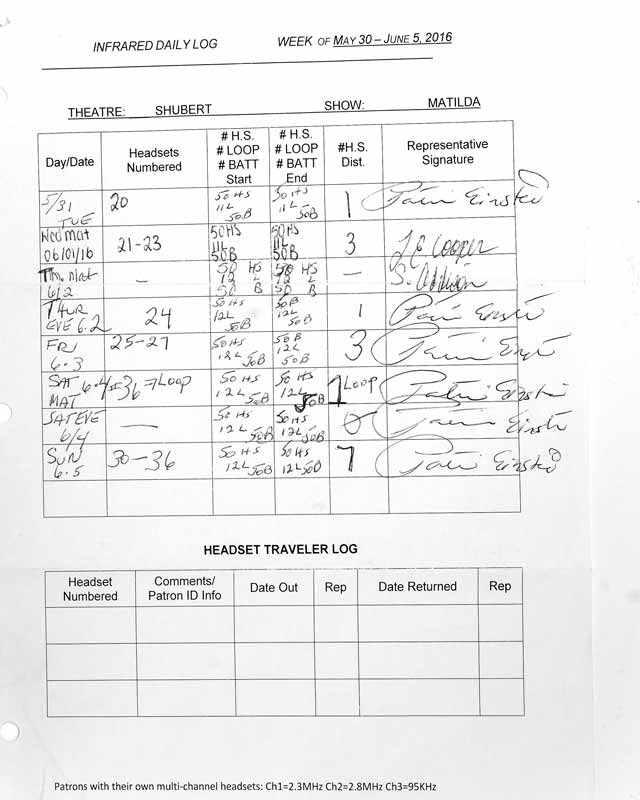 INFRARED DAILY LOG WEEK OF MAY 30 – JUNE 5, 2016
THEATRE: SHUBERT SHOW: MATILDA
Day/Date Headsets Numbered # H.S. # LOOP # BATT Start # H.S. # LOOP # BATT End #H.S. Dist. Representative Signature
5/31 TUE 20 50 HS 11L 50B 50 HS 11L 50B 1
Wed mat 06/01/16 21-23 50HS 11L 50B 50HS 11L 50B 3 J.C. Cooper
Thu. mat 6/2 — 50 HS 12 L 50 B 50 HS 12 L 50 B — S. Addison
THUR EVE 6.2 24 50 HS 12L 50B 50B 12L 50B 1
FRI 6.3 25-27 50HS 12L 50B 50B 12L 50B 3
SAT 6.4 MAT LOOP 50HS 12L 50B 50 HS 12L 50B 1 LOOP
SAT EVE 6/4 — 50HS 12L 50B 50HS 12L 50B 0
SUN 6.5 30-36 50HS 12L 50B 50HS 12L 50B 7
HEADSET TRAVELER LOG
Headset Numbered Comments/ Patron ID Info Date Out Rep Date Returned Rep
Patrons with their own multi-channel headsets: Ch1=2.3MHz Ch2=2.8MHz Ch3=95KHz